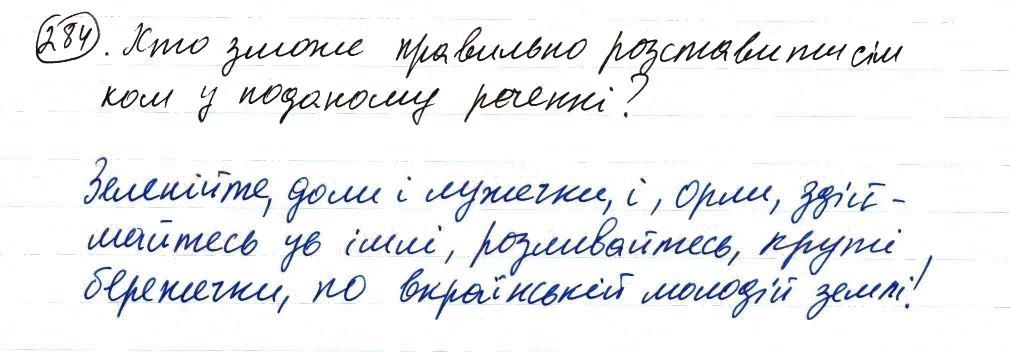 284. Хто зможе правильно розставити сім
ком у поданому реченні?
Зеленійте, доли і лужечки, і, орли, здій-
майтесь ув імлі, розливайтесь, круті
бережечки, по вкраїнській молодій землі!